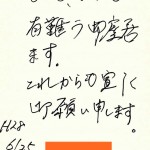 有難う御座居
ます。
これからも宜しく
御願い申します。
H28
6/25